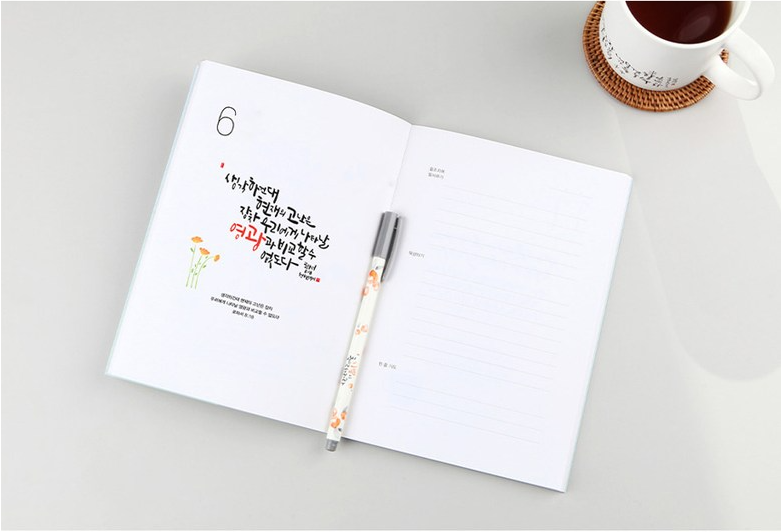 6
생각하건대
현재의 고난은
장차 우리에게 나타날
영광과 비교할 수
없도다
생각하건대 현재의 고난은 장차
우리에게 나타날 영광과 비교할 수 없도다
로마서 8:18
말씀따라
묵상하기
한 줄 기도